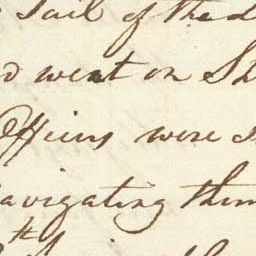 Sail of the d
d went on Sh
Officers were s
navigating them
th